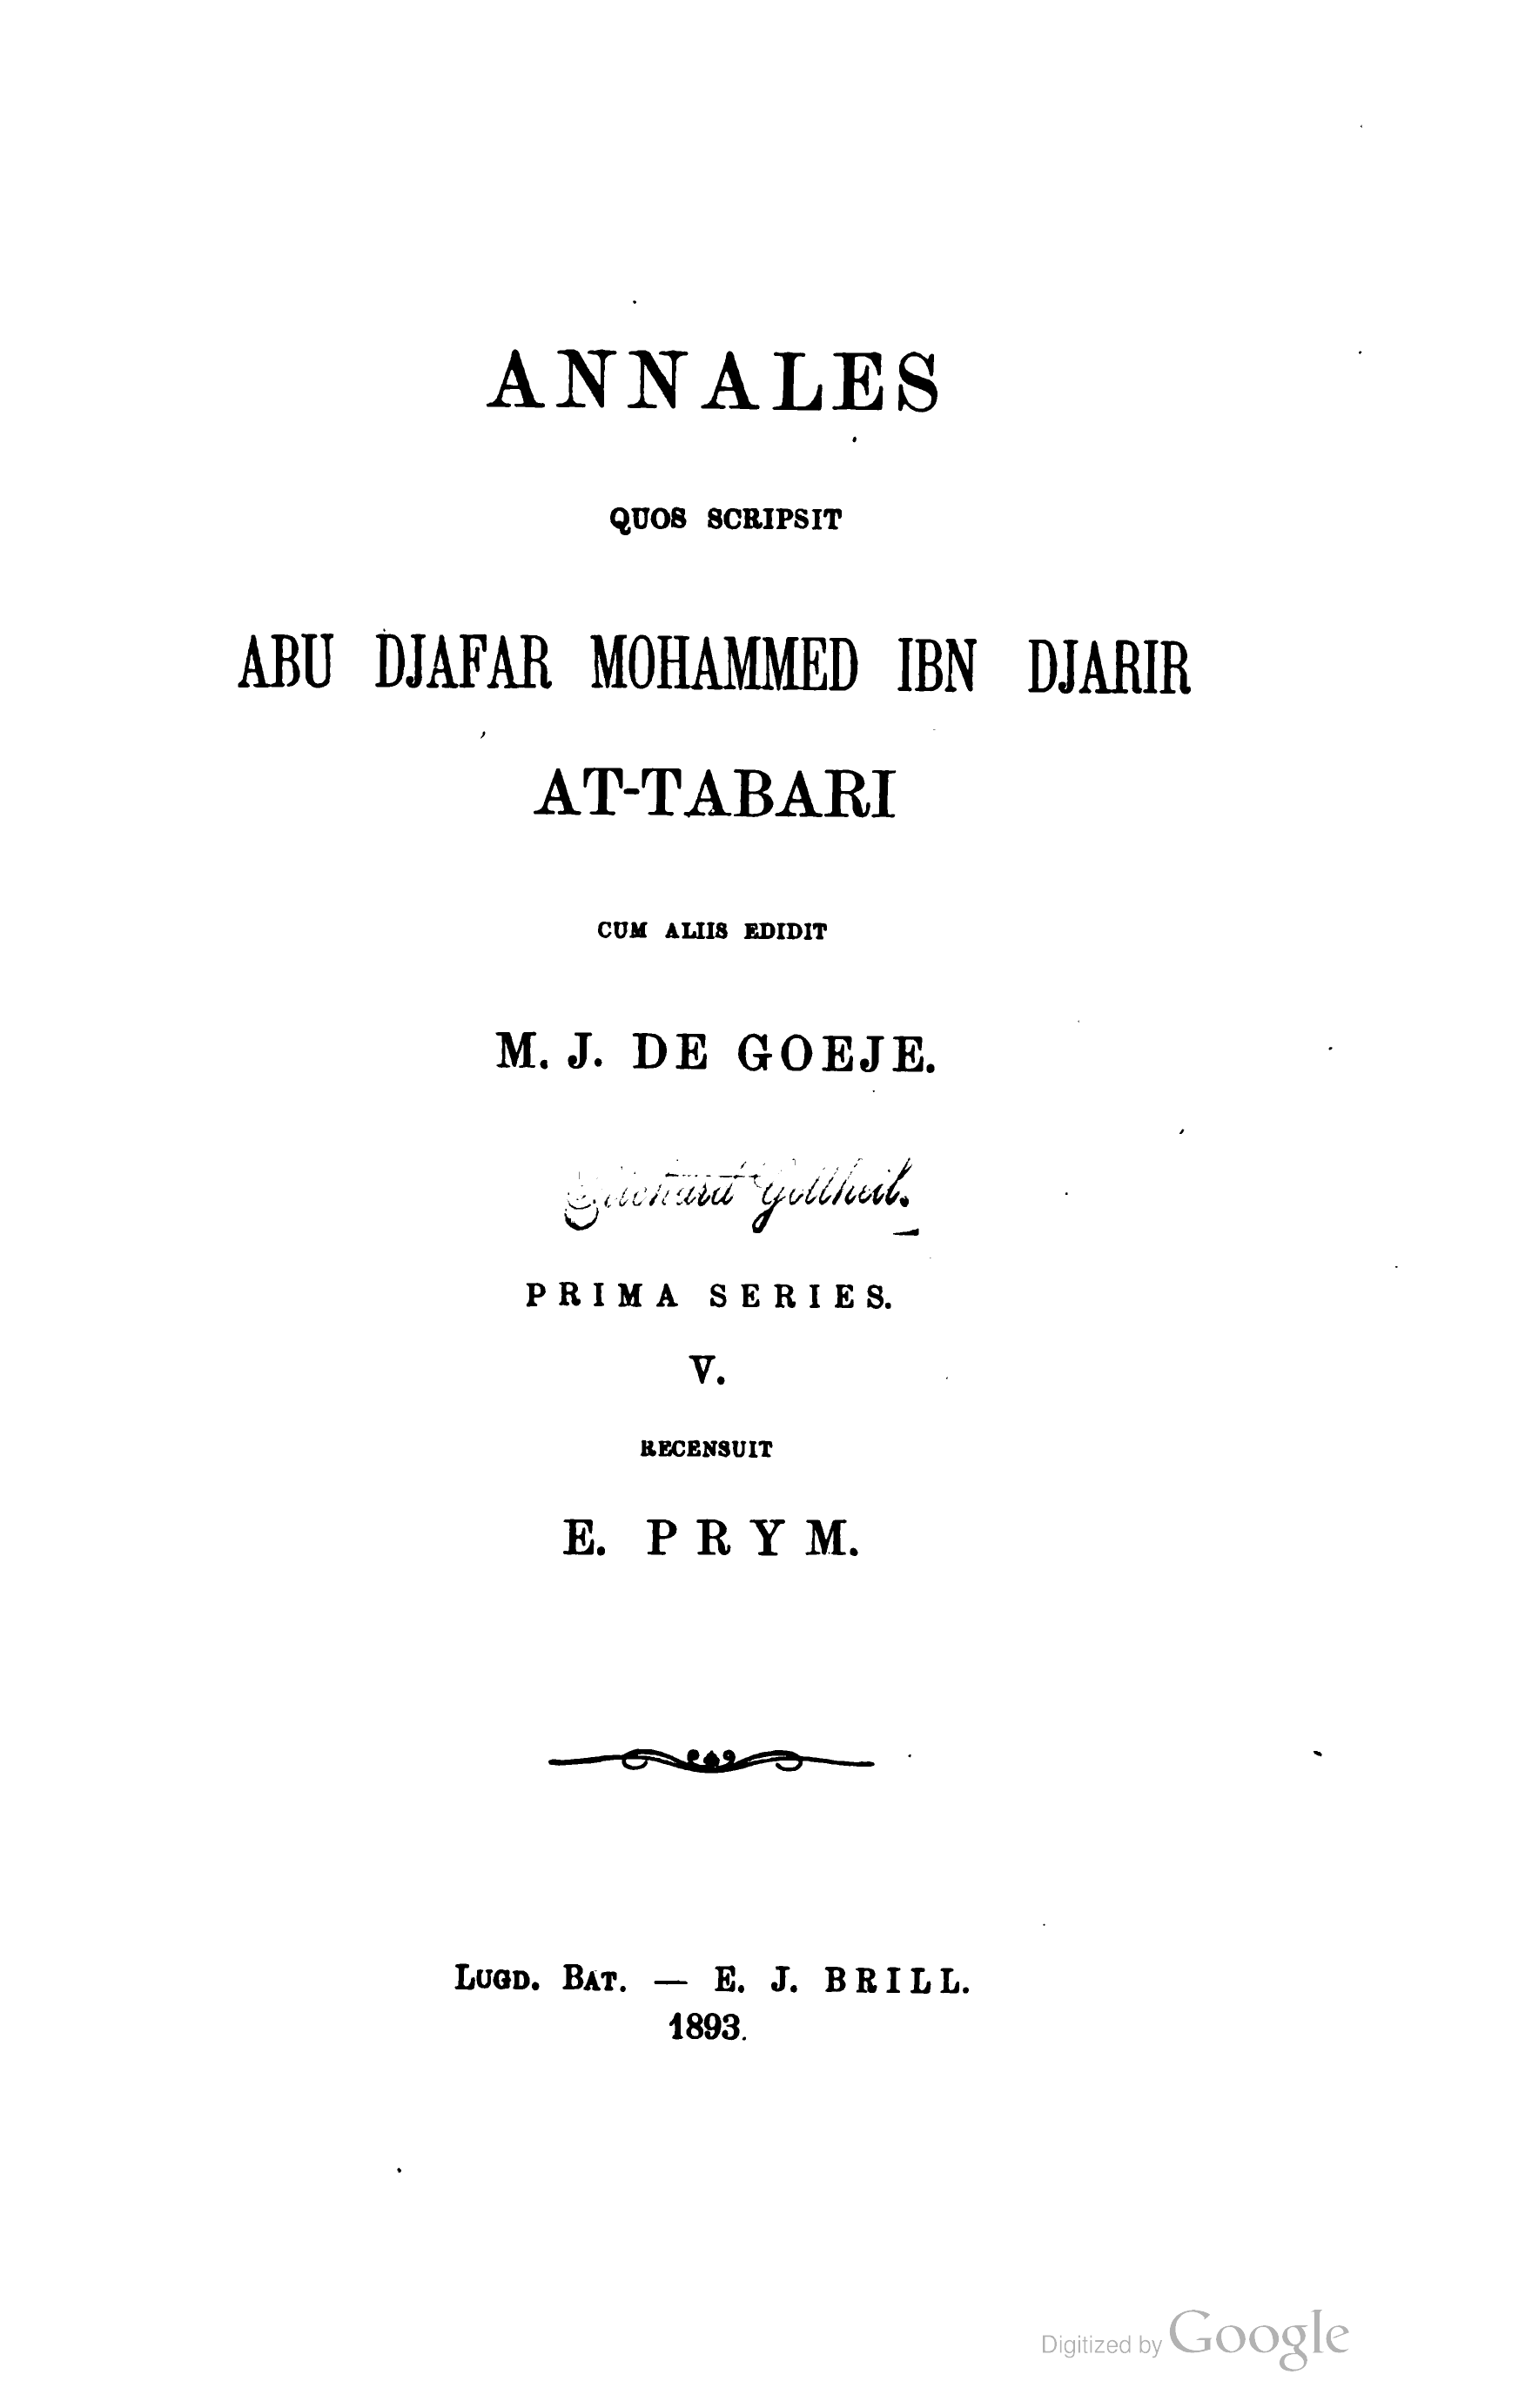 ANNALES
QUOS SCRIPSIT
ABU DJAFAR MOHAMMED IBN DJARIR
AT-TABARI
CUM ALIIS EDIDIT
M. J. DE GOEJE.
Richard Gottheil.
PRIMA SERIES.
V.
RECENSUIT
E. PRYM.
LUGD. BAT. — E. J. BRILL.
1893.
Digitized by Google